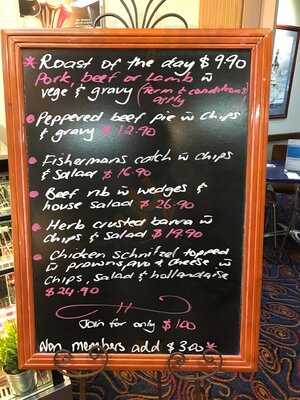 * Roast of the day $9.90
Pork, beef or Lamb w̄
vege & gravy (Term & conditions
apply
• Peppered beef pie w̄ chips
& gravy $12.90
• Fishermans catch w̄ chips
& Salad $16.90
• Beef rib w̄ wedges &
house salad $26.90
• Herb crusted barra w̄
chips & salad $19.90
• Chicken Schnitzel topped
w̄ prawns, avo & cheese w̄
chips, salad & hollandaise
$24.90
Join for only $1.00
Non members add $3.00 *